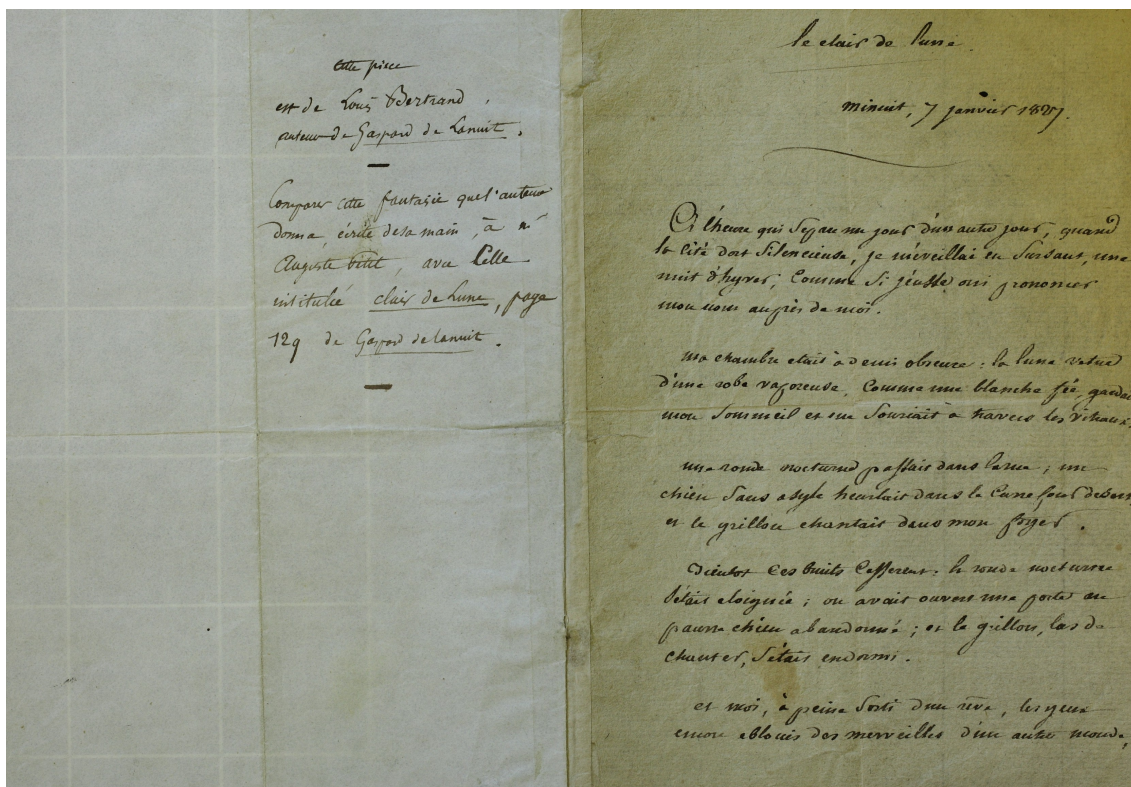 Cette piece
est de Louis Bertrand,
auteur de Gaspard de Lanuit.
Comparer cette fantaisie que l'auteur
donna, écrite de sa main, à Mr
Auguste Petit, avec Celle
intitulée clair de Lune, page
129 de Gaspard de Lanuit.
le clair de lune.
minuit, 7 janvier 1827.
A l'heure qui separe un jour d'un autre jour, quand
la Cité dort Silencieuse, je m'éveillai en Sursaut, une
nuit d'hyver, Comme Si j'eusse oui prononcer
mon nom auprès de moi.
ma chambre etait à demi obscure : la lune vetue
d'une robe vaporeuse, Comme une blanche fée, gardait
mon Sommeil et me Souriait à travers les vitraux.
une ronde nocturne passait dans la rue ; un
chien Sans asyle heurlait dans le Carrefour desert
et le grillon chantait dans mon foyer.
Bientot Ces bruits Cesserent : la ronde nocturne
S'était eloignée ; on avait ouvert une porte au
pauvre chien abandonné ; et le grillon, las de
chanter, S'était endormi.
et moi, à peine Sorti d'un rêve, les yeux
encore eblouis des merveilles d'un autre monde,